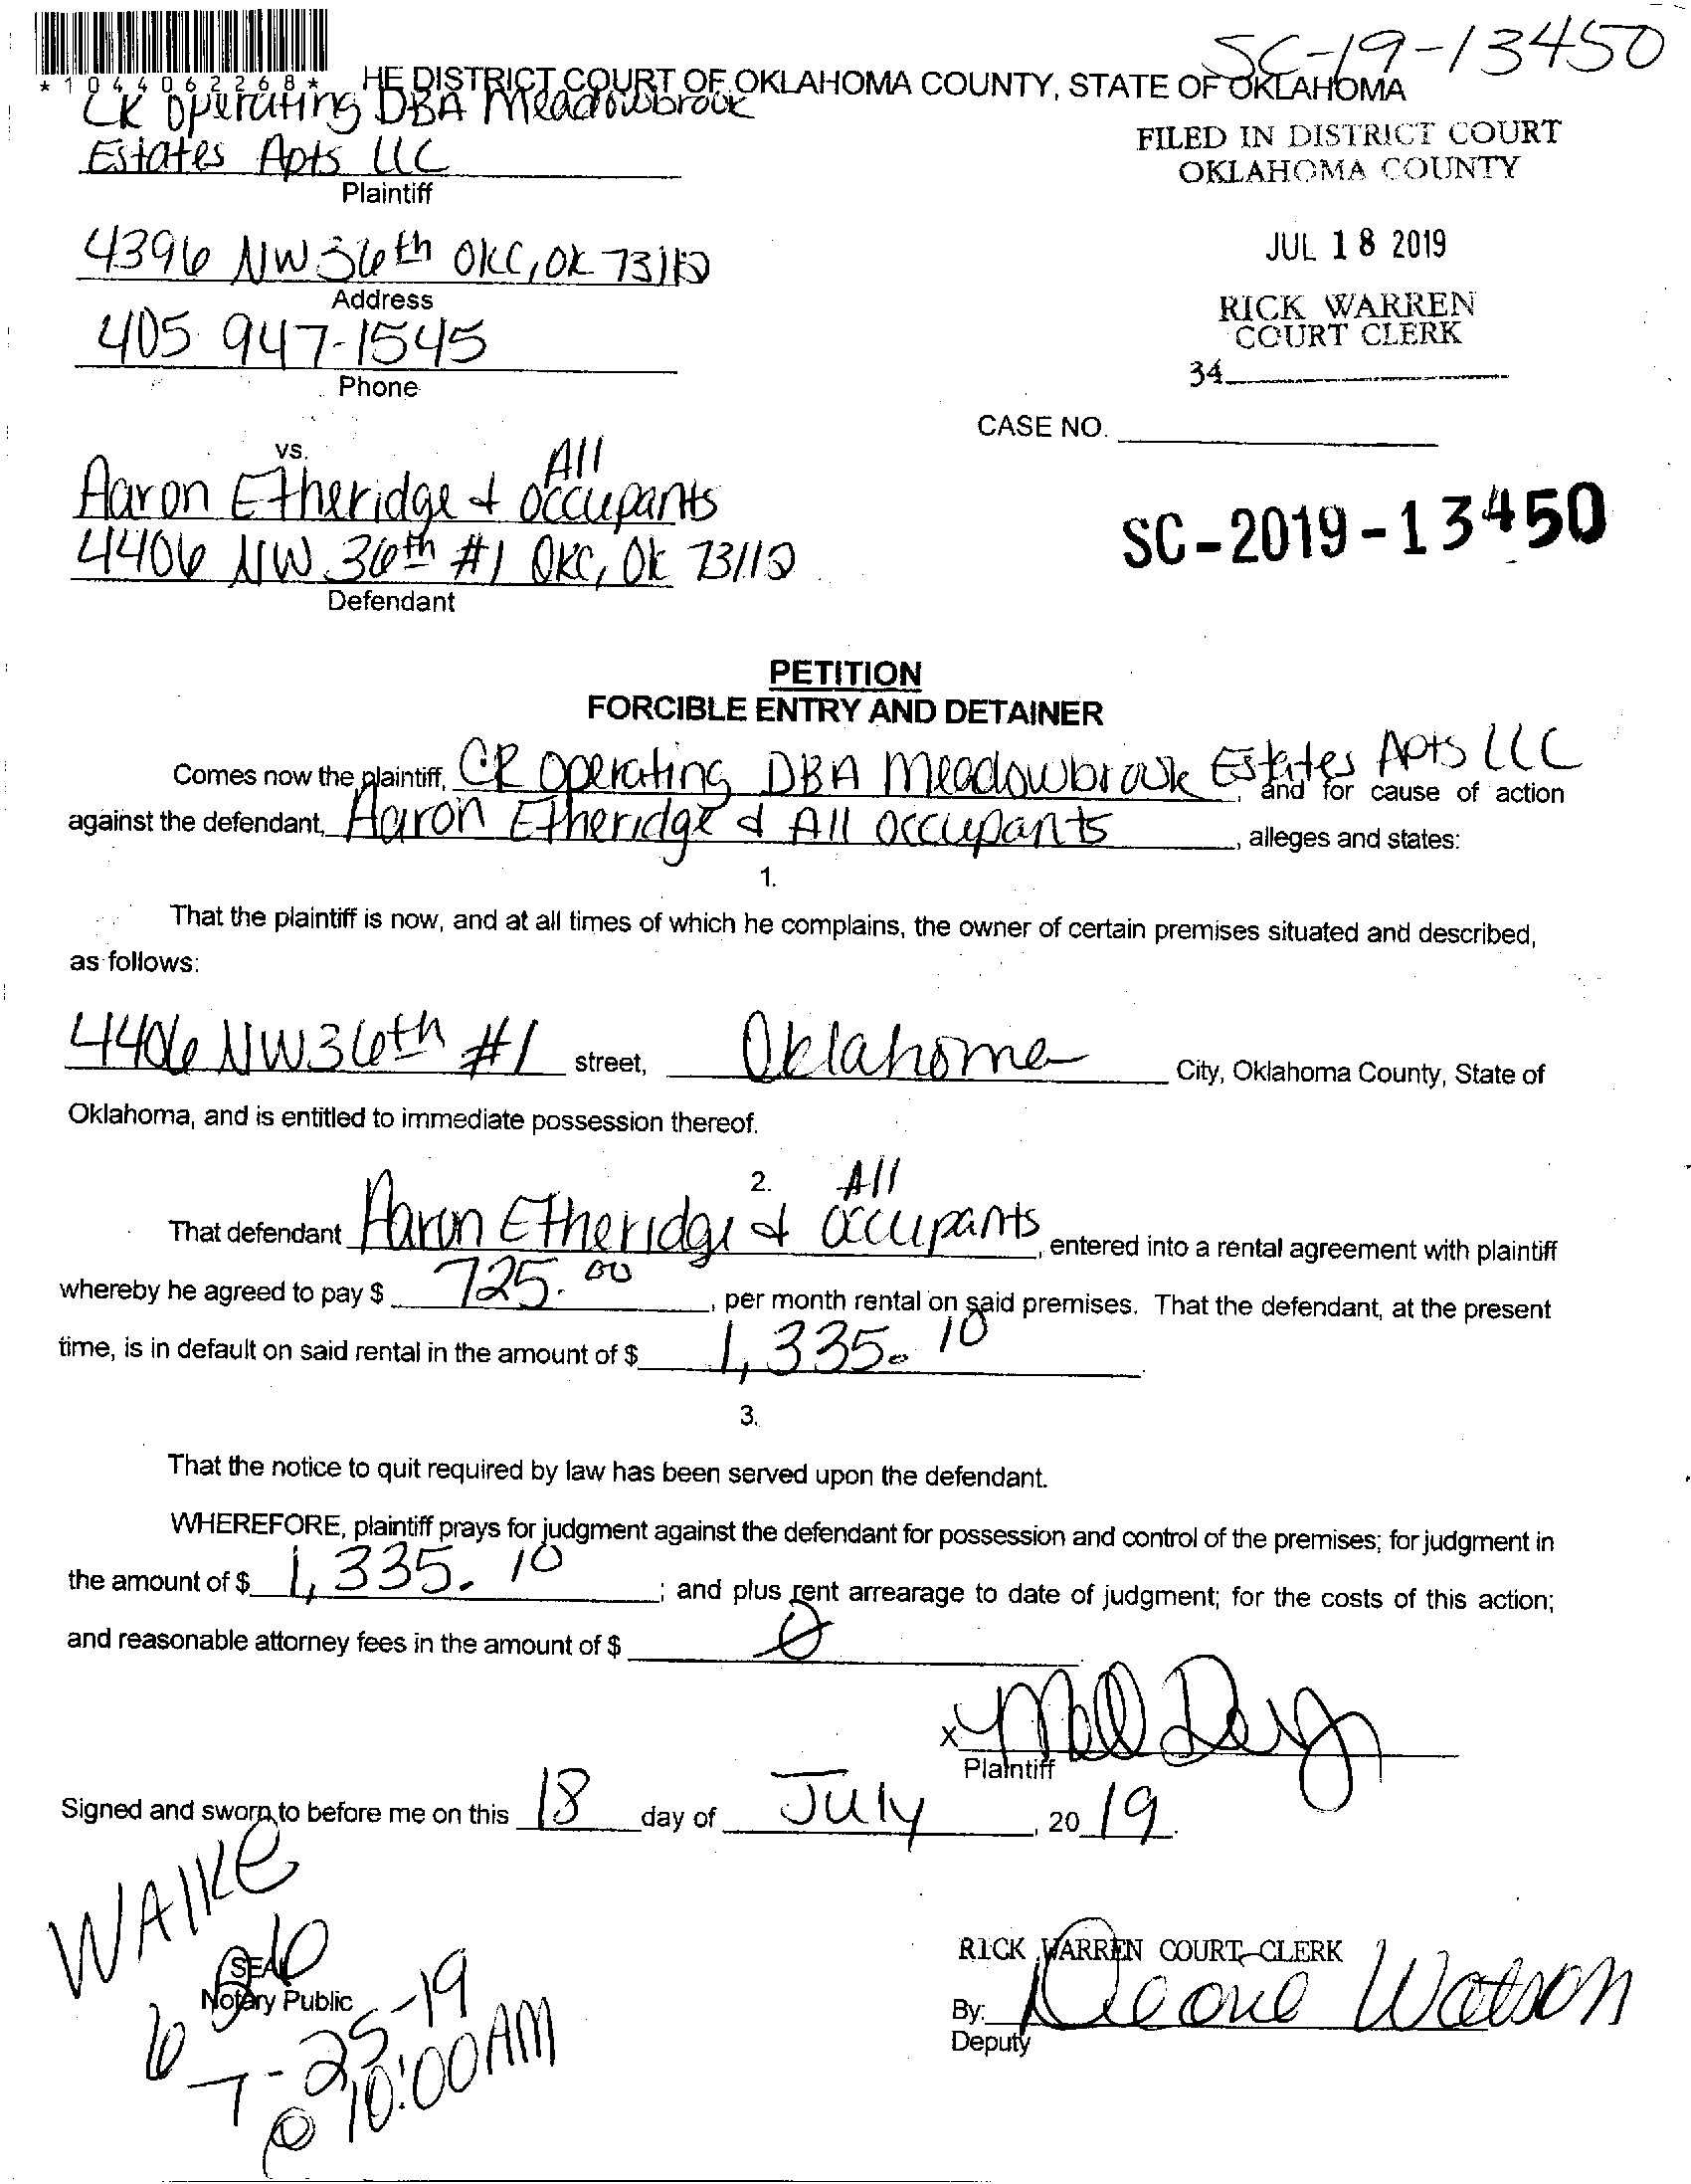 SC-19-13450
*1044062268*
HE DISTRICT COURT OF OKLAHOMA COUNTY, STATE OF OKLAHOMA
CR Operating DBA Meadowbrook
Estates Apts LLC
Plaintiff
FILED IN DISTRICT COURT
OKLAHOMA COUNTY
4396 NW 36th OKC, OK 73112
Address
JUL 18 2019
405 947-1545
Phone
RICK WARREN
COURT CLERK
34
CASE NO.
vs.
All
Aaron Etheridge & occupants
4406 NW 36th #1 OKC, OK 73112
Defendant
SC-2019-13450
PETITION
FORCIBLE ENTRY AND DETAINER
Comes now the plaintiff, CR Operating DBA Meadowbrook Estates Apts LLC, and for cause of action
against the defendant, Aaron Etheridge & All occupants, alleges and states:
1.
That the plaintiff is now, and at all times of which he complains, the owner of certain premises situated and described,
as follows:
4406 NW 36th #1 street, Oklahoma City, Oklahoma County, State of
Oklahoma, and is entitled to immediate possession thereof.
2.
All
That defendant Aaron Etheridge & occupants, entered into a rental agreement with plaintiff
whereby he agreed to pay $ 725.00, per month rental on said premises. That the defendant, at the present
time, is in default on said rental in the amount of $ 1,335.10
3.
That the notice to quit required by law has been served upon the defendant.
WHEREFORE, plaintiff prays for judgment against the defendant for possession and control of the premises; for judgment in
the amount of $ 1,335.10; and plus rent arrearage to date of judgment; for the costs of this action;
and reasonable attorney fees in the amount of $ 0
x
Plaintiff
Signed and sworn to before me on this 18 day of July, 2019.
WAIKE
SEAL
Notary Public
7-25-19
@ 10:00AM
RICK WARREN COURT CLERK
By: Watson
Deputy